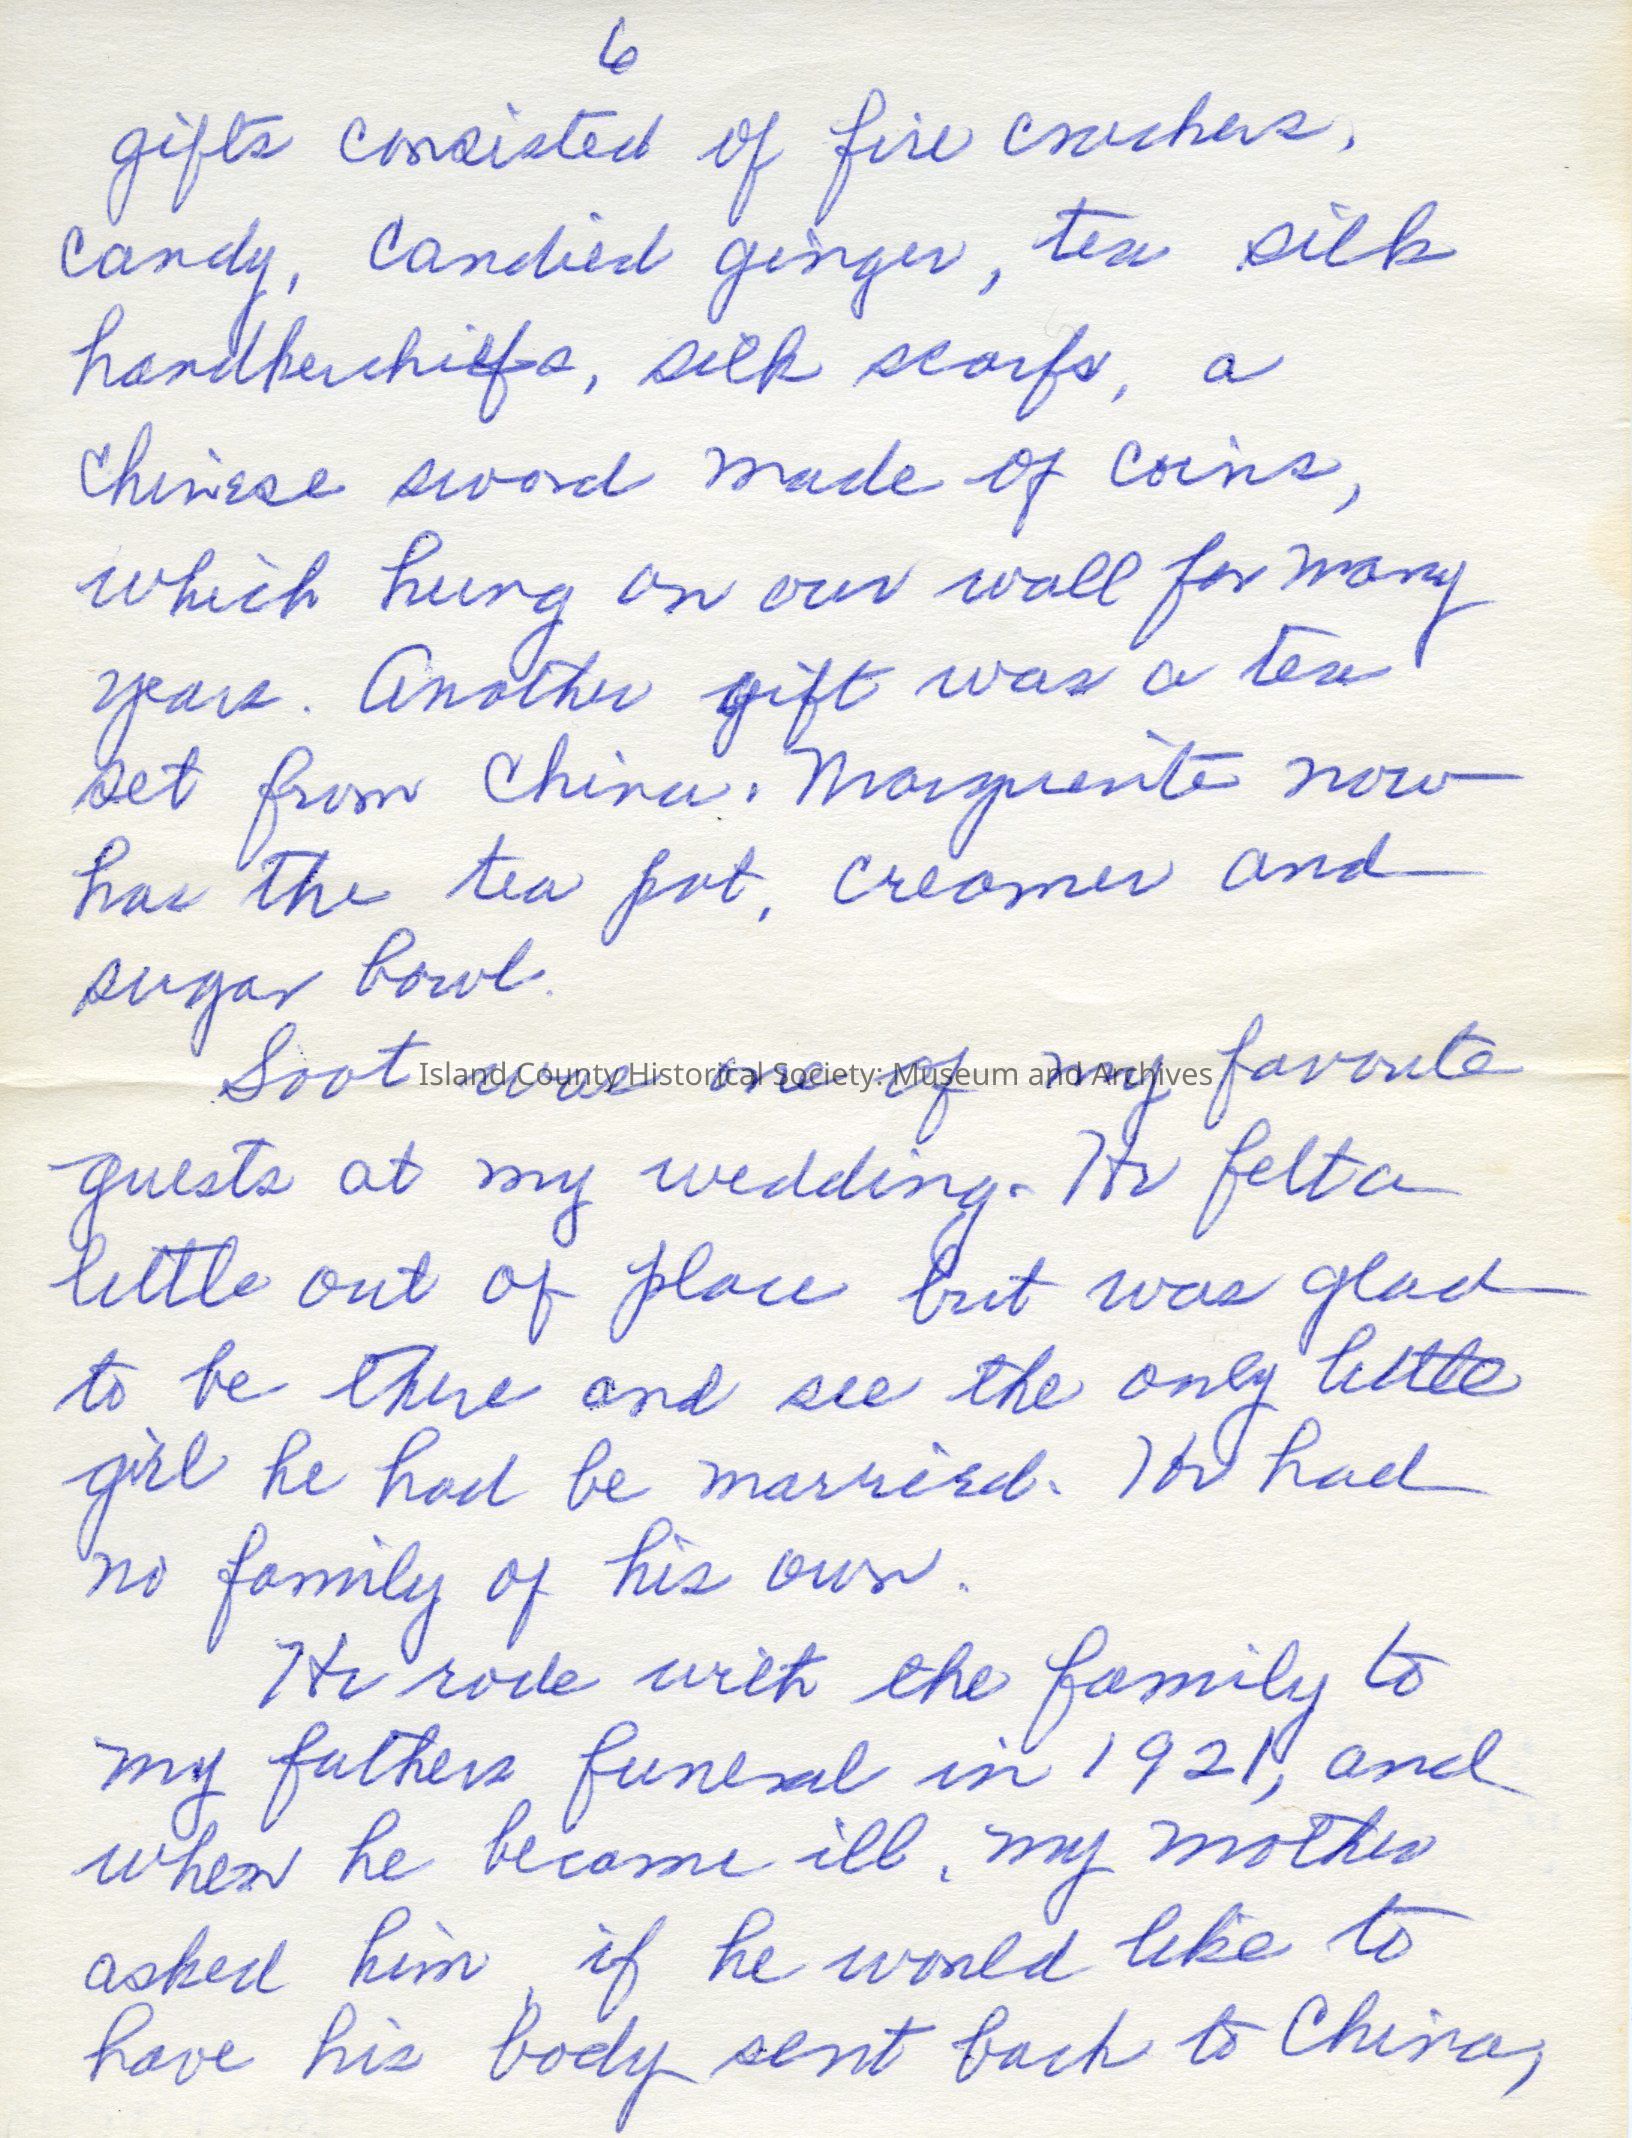 6
gifts consisted of fire crackers,
candy, candied ginger, tea silk
handkerchiefs, silk scarfs, a
Chinese sword made of coins,
which hung on our wall for many
years. Another gift was a tea
set from China. Marguerite now
has the tea pot, creamer and
sugar bowl.
Soot was one of my favorite
Island County Historical Society: Museum and Archives
guests at my wedding. He felt a
little out of place but was glad
to be there and see the only little
girl he had be married. He had
no family of his own.
He rode with the family to
my fathers funeral in 1921, and
when he became ill, my mother
asked him, if he would like to
have his body sent back to China,